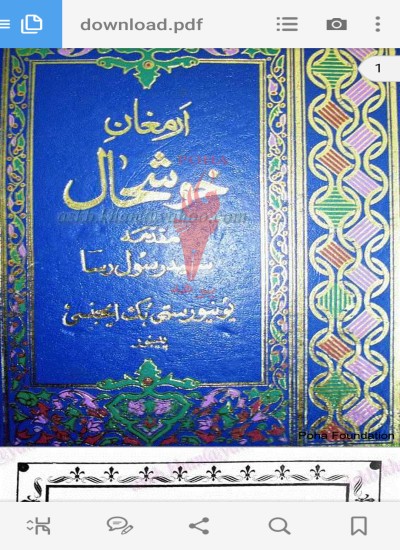 download.pdf
1
ارمغانِ
خوشحال
مقدمه
سید رسول رسا
یونیورسٹی بک ایجنسی
پشاور
Poha Foundation